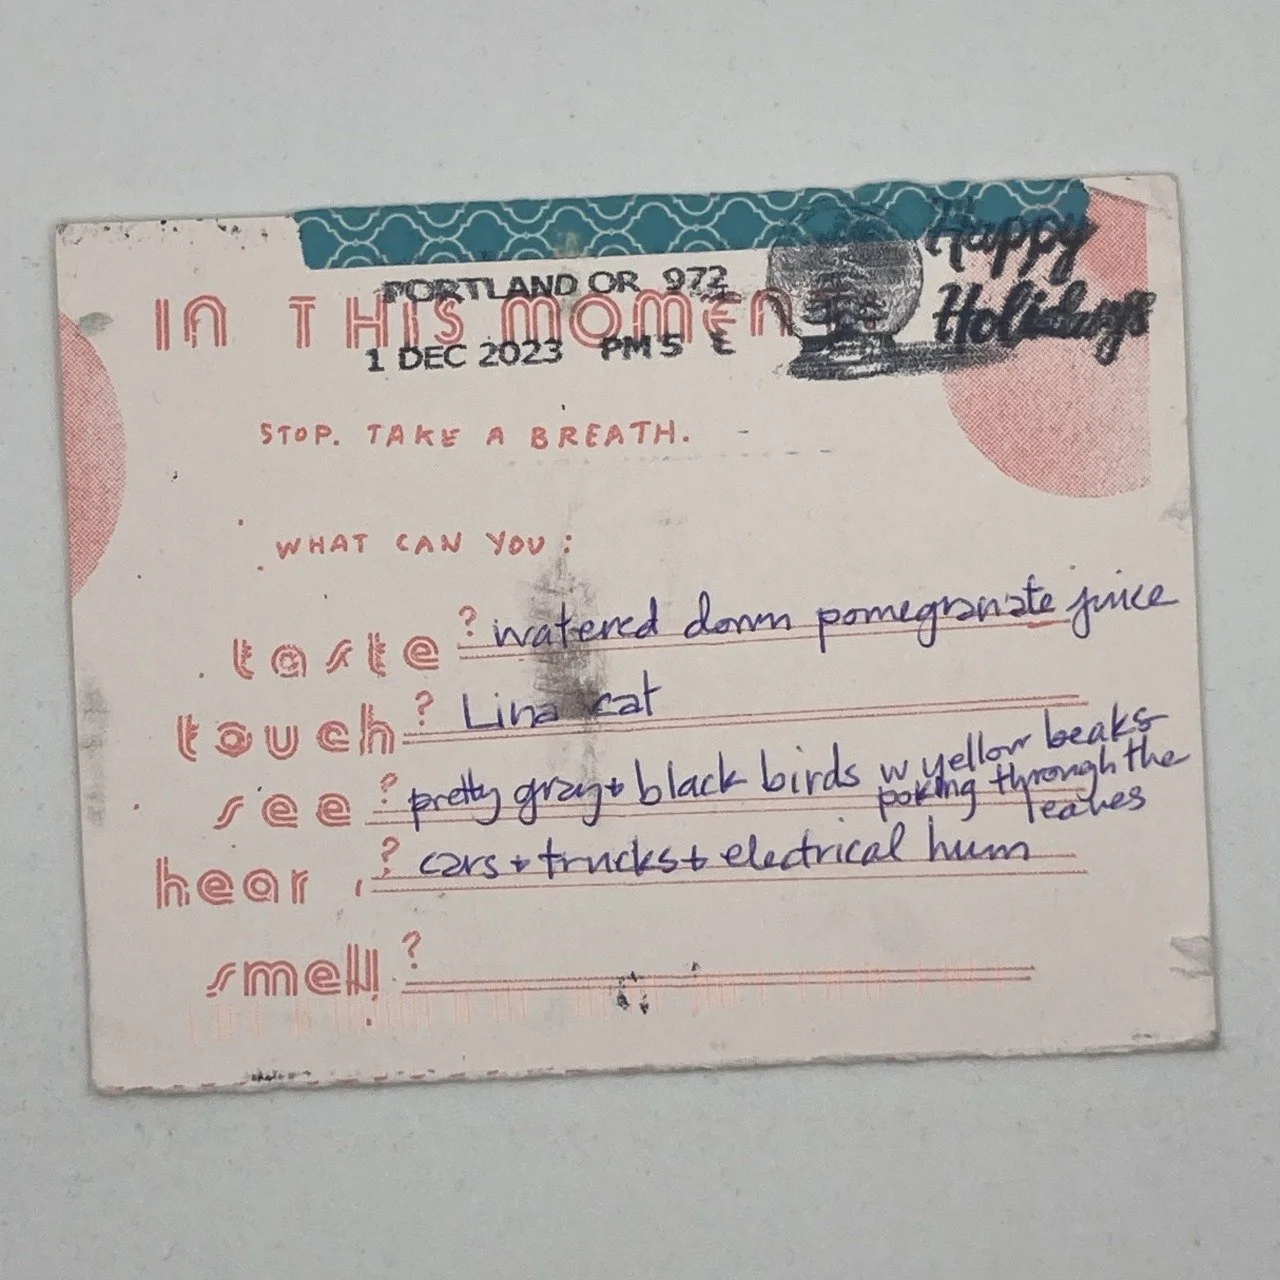 Happy
Holidays
PORTLAND OR 972
IN THIS MOMENT
1 DEC 2023 PM 5 L
STOP. TAKE A BREATH.
WHAT CAN YOU:
taste? watered down pomegranate juice
touch? Lina cat
see? pretty gray + black birds w yellow beaks
poking through the
leaves
hear? cars + trucks + electrical hum
smell?